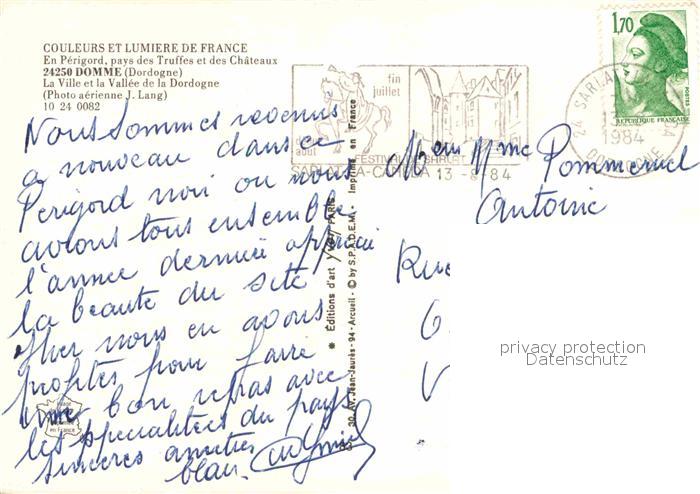 COULEURS ET LUMIERE DE FRANCE
En Périgord, pays des Truffes et des Châteaux
24250 DOMME (Dordogne)
La Ville et la Vallée de la Dordogne
(Photo aérienne J. Lang)
10 24 0082
Nous sommes revenus
a nouveau dans ce
Perigord noir ou nous
avions tous ensemble
l'annee derniere apprecié
la beaute du site
Hier nous en avons
profiter pour faire
un bon repas avec
les specialitees du pays
sinceres amities
fin
juillet
août
FESTIVAL
SARLAT-LA-CANEDA 13-8-84
24 SARLAT
13
1984
DORDOGNE
1,70
POSTES
REPUBLIQUE FRANÇAISE
Mr et Mme Pommeruel
Antoine
Rue
6
V
✱ Éditions d'art YVON PARIS
30, Av. Jean-Jaurès - 94 - Arcueil - © by S.P.A.D.E.M. - Imprimé en France
privacy protection
Datenschutz